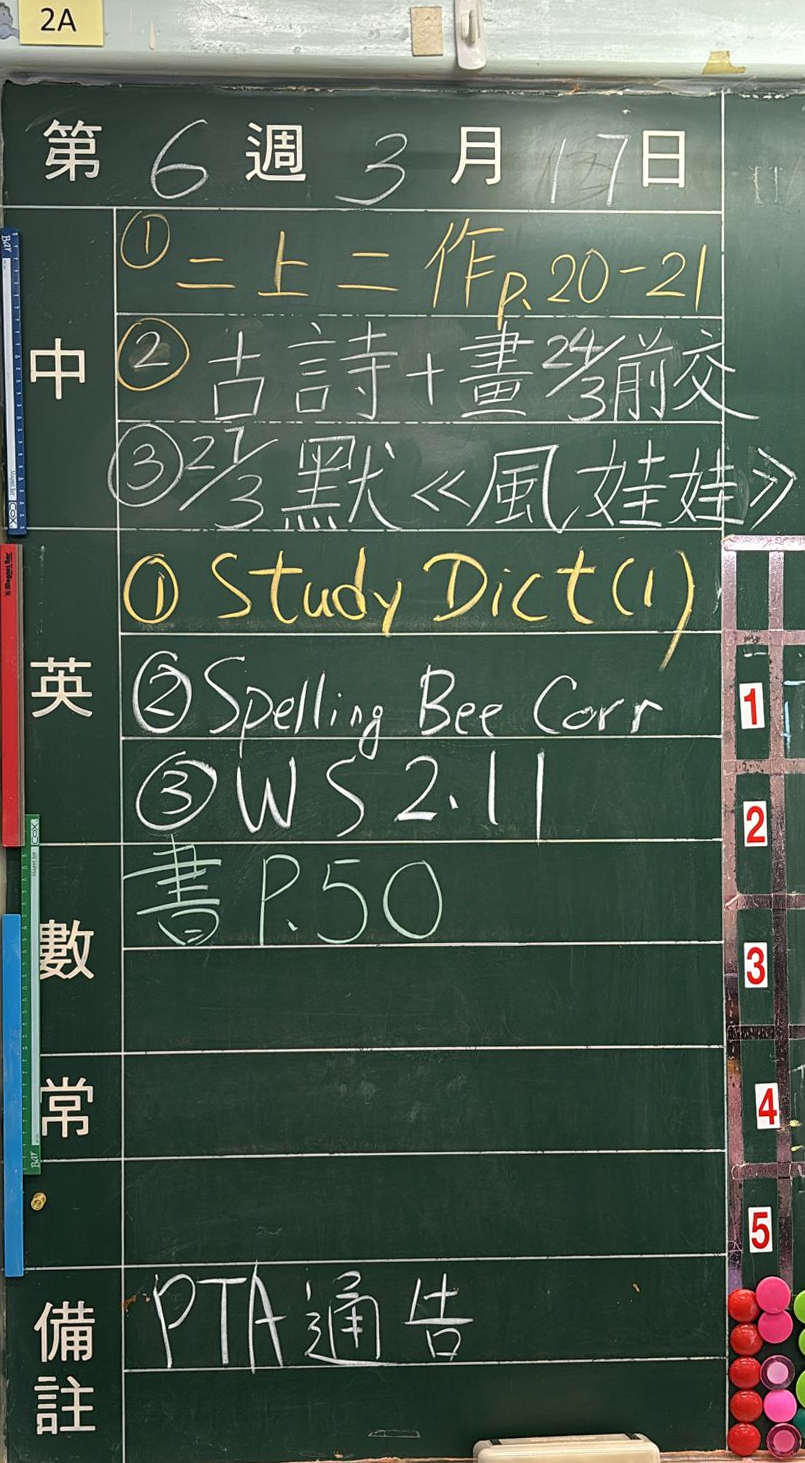 2A
第 6 週 3 月 17 日
中
① 二上二作 p.20-21
② 古詩+畫 24/3前交
③ 27/3 默《風娃娃》
英
① Study Dict (1)
② Spelling Bee Corr
③ WS 2.11
數
書 P.50
常
備註
PTA 通告
1
2
3
4
5